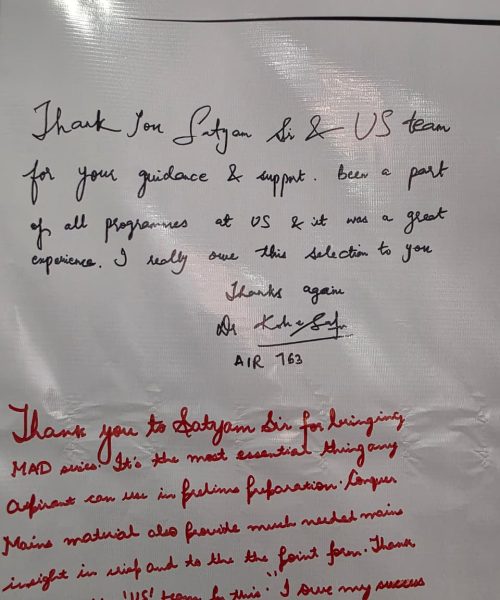 Thank You Satyam Sir & US team
for your guidance & support. Been a part
of all programmes at US & it was a great
experience. I really owe this selection to you
Thanks again
Dr
AIR 763
Thank you to Satyam Sir for bringing
MAD series. It's the most essential thing any
aspirant can use in prelims preparation. Conquer
Mains material also provide much needed mains
insight in and to the the point form. Thank
'US' team for this." I owe my success